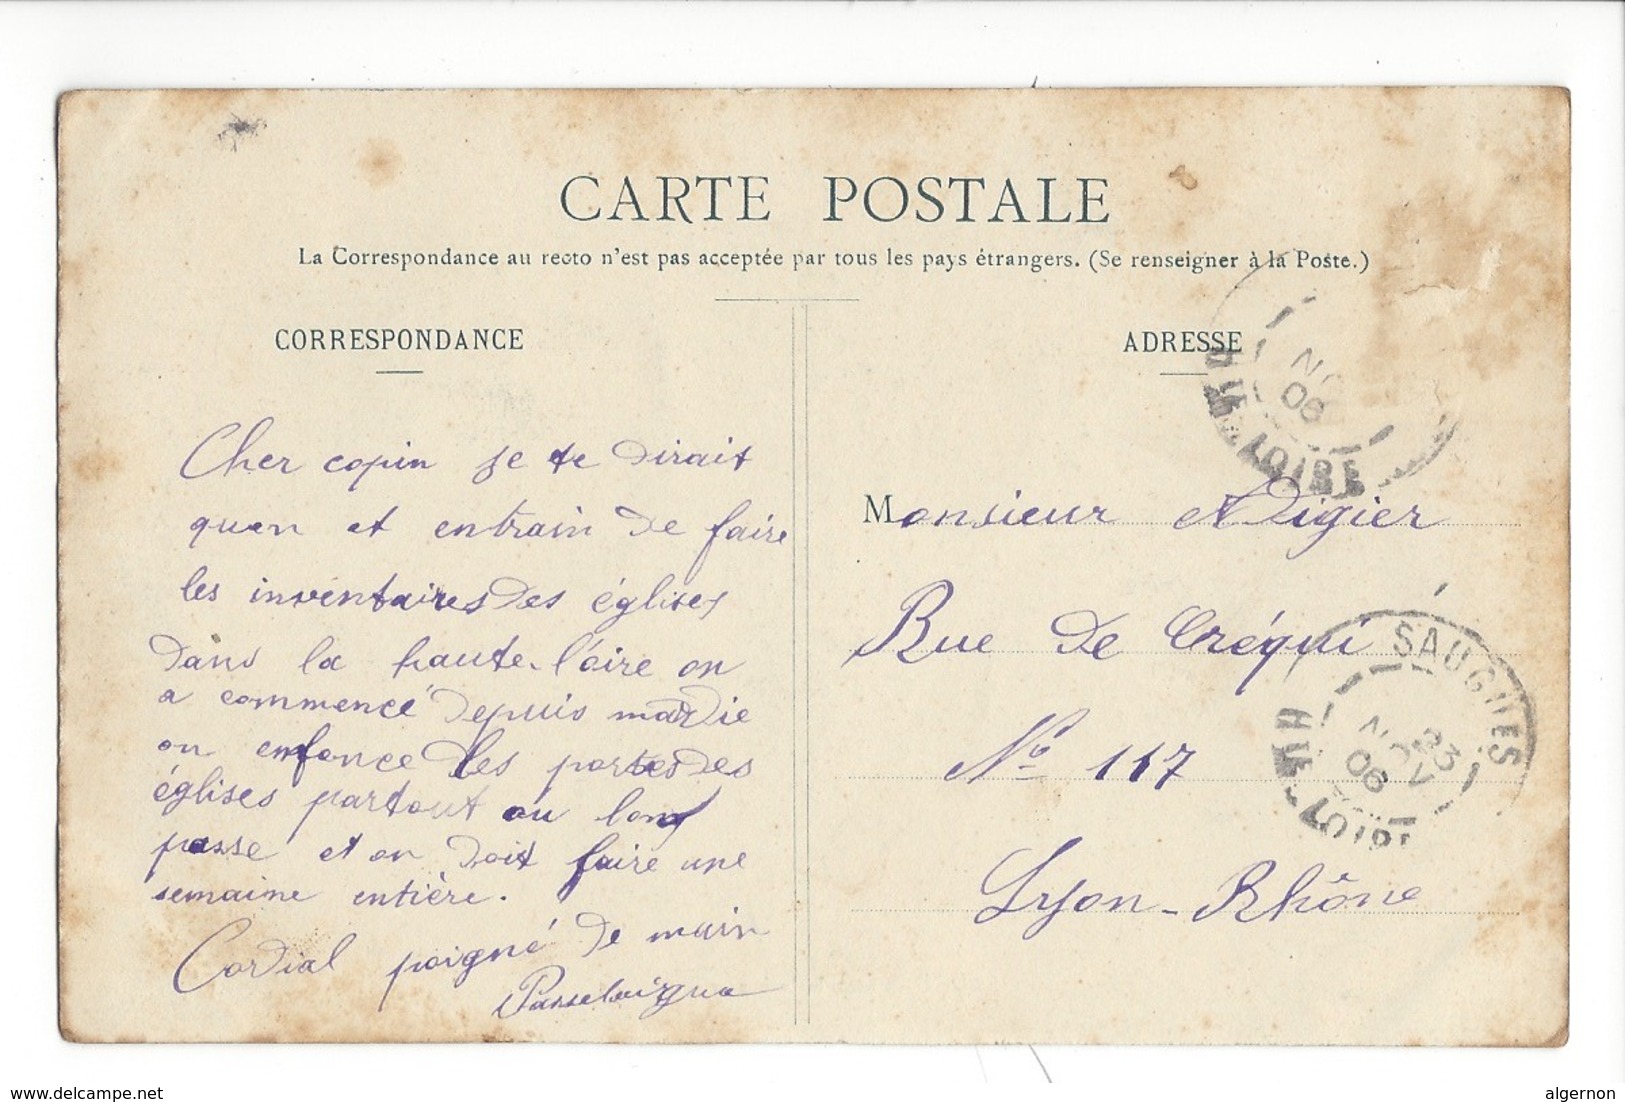 CARTE POSTALE
La Correspondance au recto n'est pas acceptée par tous les pays étrangers. (Se renseigner à la Poste.)
CORRESPONDANCE
Cher copin je te dirait
quen et entrain de faire
les inventaires des églises
dans la haute-l'oire on
a commencé depuis mardie
on enfonce les portes des
églises partout ou lon
passe et on doit faire une
semaine entière.
Cordial poigné de main
ADRESSE
Monsieur Adigier
Rue de Créqui
No 117
Lyon-Rhône
NO
06
HTE LOIRE
SAUGUES
23
NOV
06
HTE LOIRE
www.delcampe.net
algernon